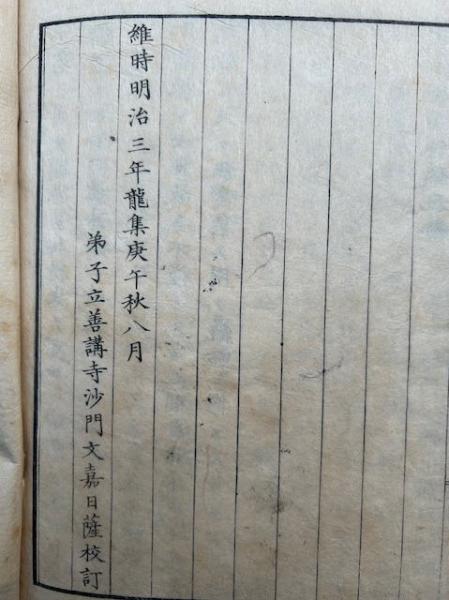 維時明治三年龍集庚午秋八月
弟子立善講寺沙門文嘉日薩校訂